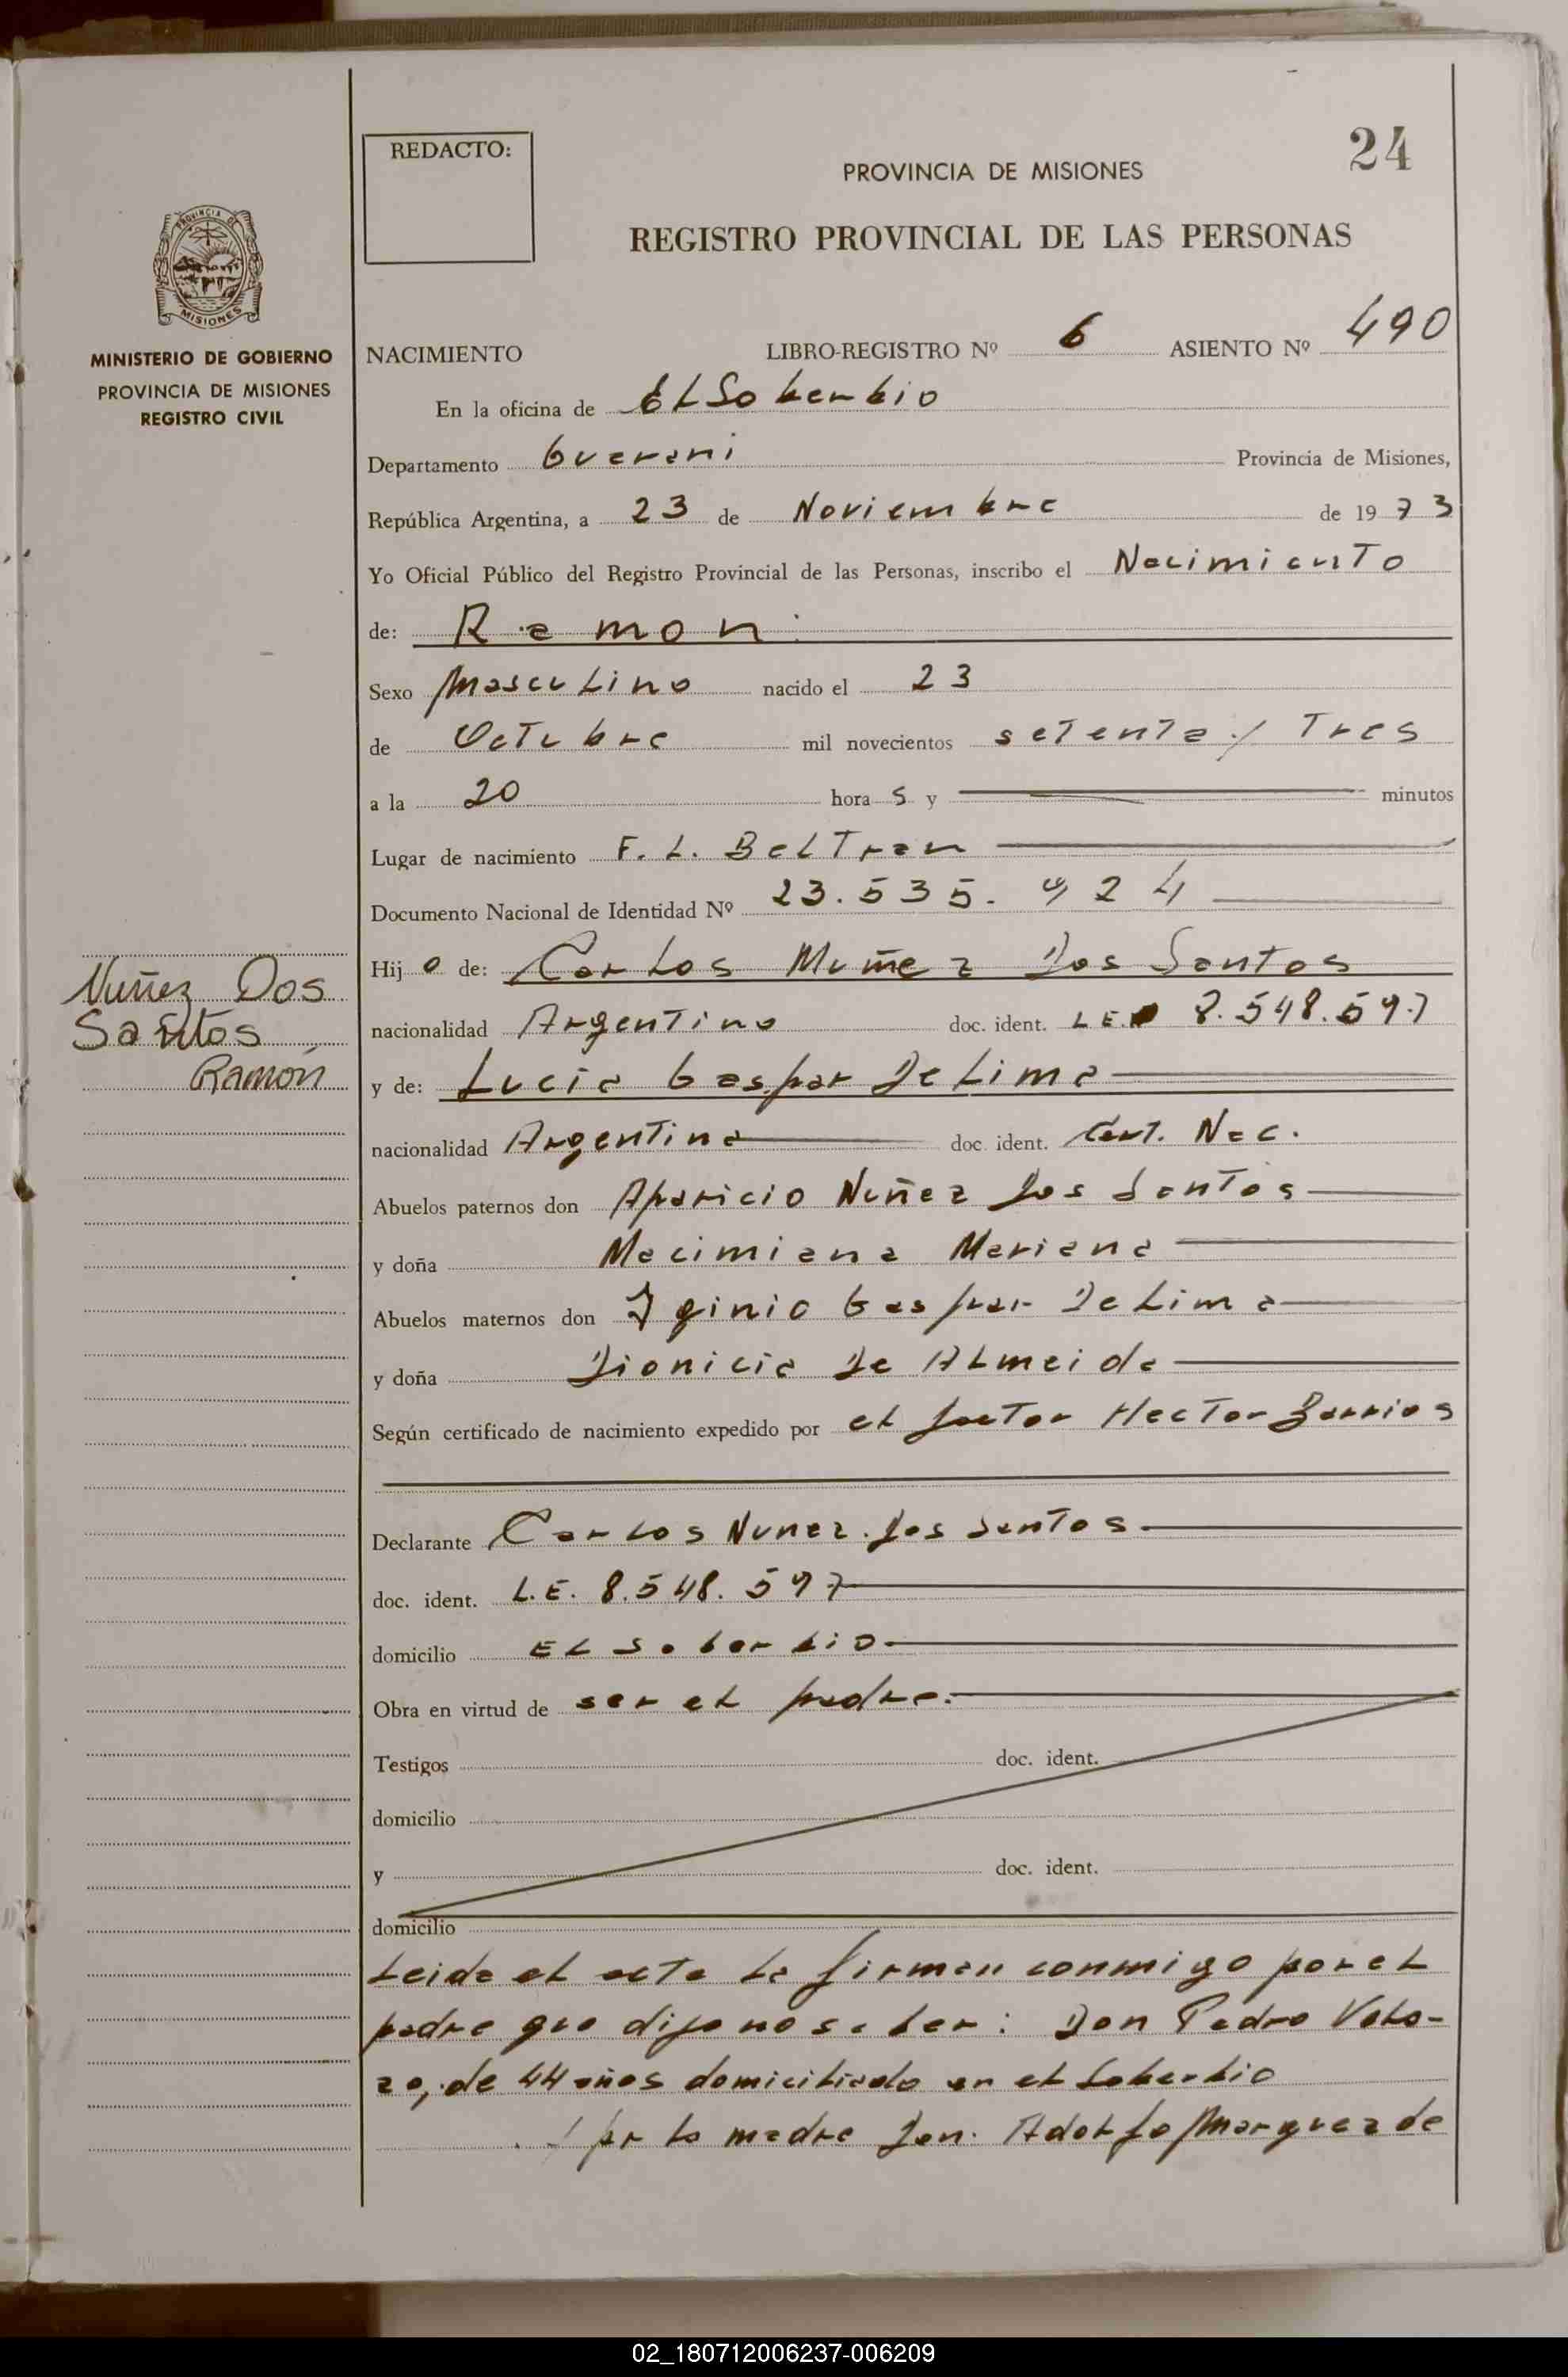 24
REDACTO:
PROVINCIA DE MISIONES
REGISTRO PROVINCIAL DE LAS PERSONAS
PROVINCIA DE
MISIONES
MINISTERIO DE GOBIERNO
PROVINCIA DE MISIONES
REGISTRO CIVIL
NACIMIENTO LIBRO-REGISTRO Nº 6 ASIENTO Nº 490
En la oficina de El Soberbio
Departamento Guarani Provincia de Misiones,
República Argentina, a 23 de Noviembre de 1973
Yo Oficial Público del Registro Provincial de las Personas, inscribo el Nacimiento
de: Ramon
Sexo Masculino nacido el 23
de Octubre mil novecientos setenta y Tres
a la 20 hora s y minutos
Lugar de nacimiento F. L. Beltran
Documento Nacional de Identidad Nº 23.535.924
Hij o de: Carlos Muñez Dos Santos
nacionalidad Argentino doc. ident. L E. 8.548.597
y de: Lucia Gaspar De Lima
nacionalidad Argentina doc. ident. Cert. Nac.
Abuelos paternos don Aparicio Nuñez Dos Santos
y doña Macimiana Mariana
Abuelos maternos don Iginio Gaspar De Lima
y doña Dionicia De Almeida
Según certificado de nacimiento expedido por el Doctor Hector Barrios
Declarante Carlos Nunez Dos Santos
doc. ident. L.E. 8.548.597
domicilio El Soberbio
Obra en virtud de ser el padre.
Testigos doc. ident.
domicilio
y doc. ident.
domicilio
Leida el acta la firman conmigo por el
padre que dijo no saber: Don Pedro Velo-
zo, de 44 años domiciliado en el Soberbio
y por la madre Don. Adolfo Marquez de
Nuñez Dos
Santos
Ramón
02_180712006237-006209